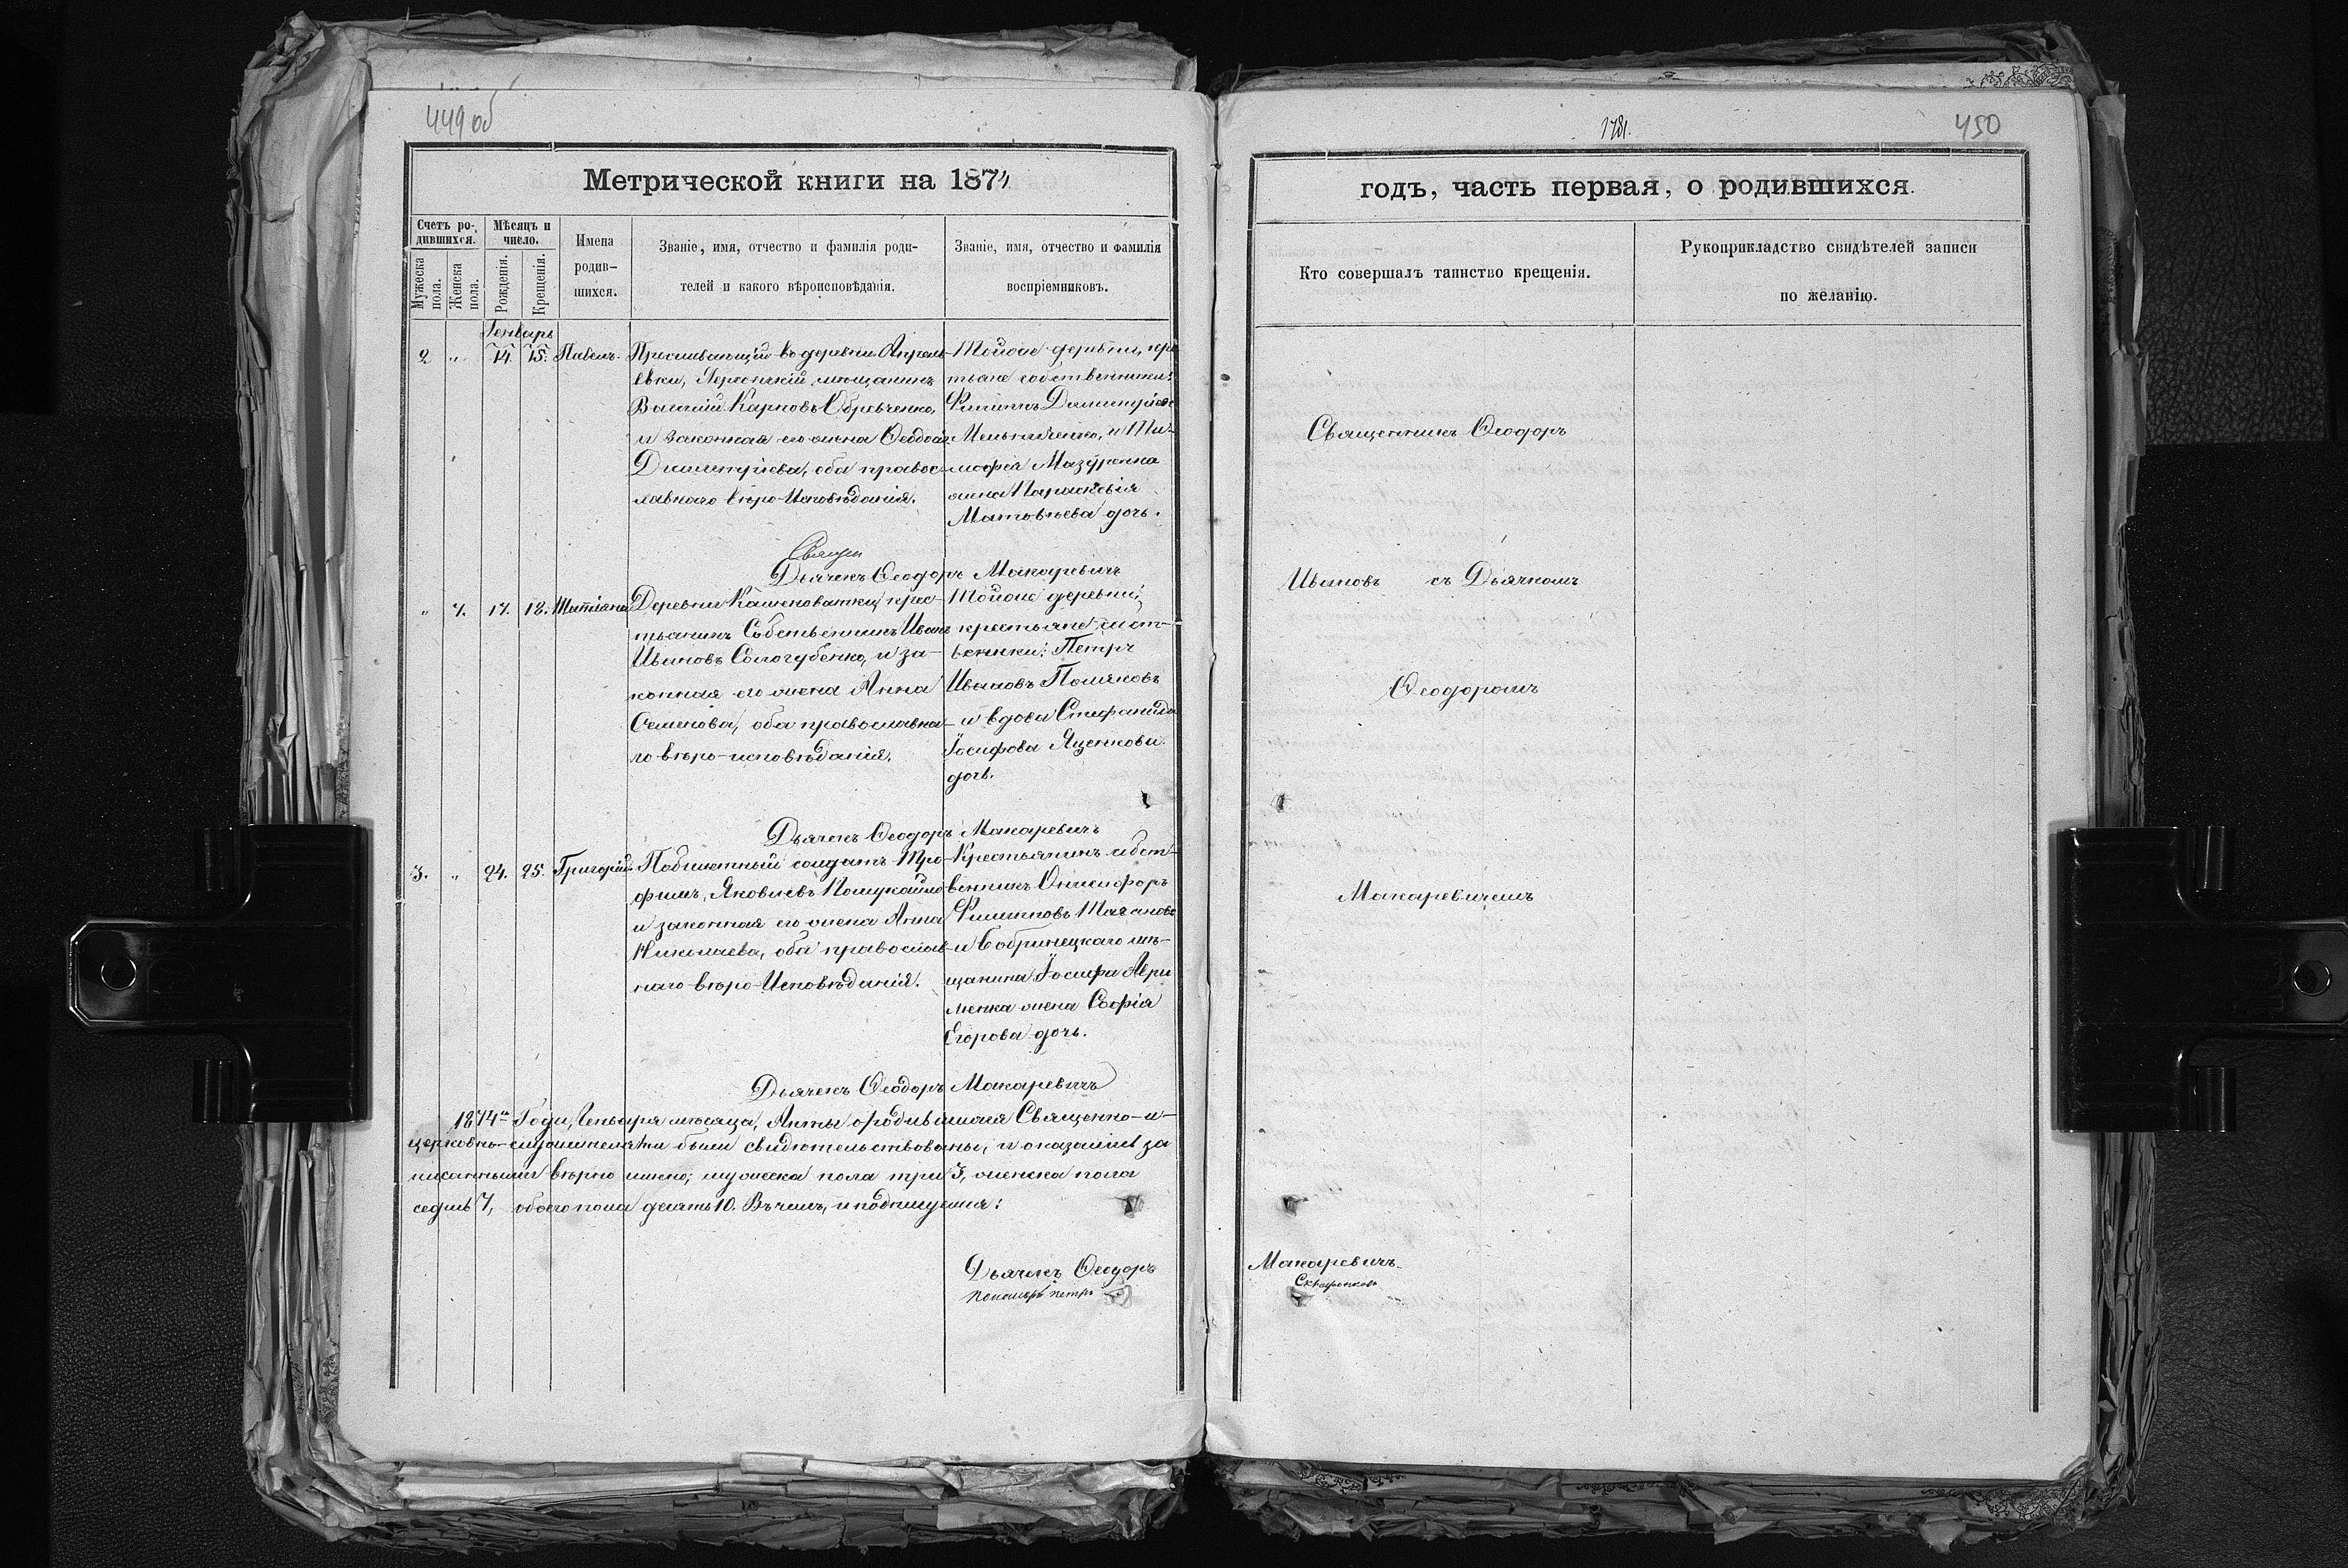 449 об
Метрической книги на 1874
Счетъ ро-
дившихся.
Мужеска пола.
Женска пола.
Мѣсяцъ и число.
Рожденія.
Крещенія.
Имена
родив-
шихся.
Званіе, имя, отчество и фамилія роди-
телей и какого вѣроисповѣданія.
Званіе, имя, отчество и фамилія
воспріемниковъ.
Генварь
2 „ 14. 15. Павелъ.
Проживающій въ деревни Апрель-
евки, Херсонскій мѣщанинъ
Василій Карповъ Обревченко,
и законная его жена Ѳеодосія
Димитріева, оба правос-
лавнаго вѣро-Исповѣданія.
Тойже деревни, кре
тьяне собственники:
Филиппъ Димитріевъ
Мельниченко, и Ти-
мофея Мазуренка
жена Параскевія
Матовѣева дочь.
Священ
Дьячекъ Ѳеодоръ Макаревичъ
„ 7. 17. 18. Татіана
Деревни Каменоватки, крес-
тьянинъ Собственникъ Иванъ
Ивановъ Сологубенко, и за-
конная его жена Анна
Семенова, оба православна-
го вѣро-исповѣданія.
Тойже деревни,
крестьяне собст-
венники: Петръ
Ивановъ Поляковъ
и вдова Стефанида
Іосифова Яценкова
дочь.
Дьячекъ Ѳеодоръ Макаревичъ
3. „ 24. 25. Григорій
Побилетный солдатъ Тро-
фимъ, Яковлевъ
и законная его жена Анна
Николаева, оба православ-
наго вѣро-Исповѣданія.
Крестьянинъ собст-
венникъ Онисифоръ
Филипповъ
и Бобринецкаго мѣ-
щанина Іосифа
менка жена Софія
Егорова дочь.
Дьячекъ Ѳеодоръ Макаревичъ
1874го Года, Генваря мѣсяца, Акты о родившихся Священно-и-
церковно-служителями были свидѣтельствованы, и оказались за
писанными вѣрно именно; мужеска пола три 3, женска пола
седмь 7, обоего пола десять 10. Въ чемъ, и подпишемся:
Дьячекъ Ѳеодоръ
Пономарь Петръ
1781.
450
годъ, часть первая, о родившихся.
Кто совершалъ таинство крещенія.
Рукоприкладство свидѣтелей записи
по желанію.
Священникъ Ѳеодоръ
Ивановъ съ Дьячкомъ
Ѳеодоромъ
Макаревичемъ
Макаревичъ